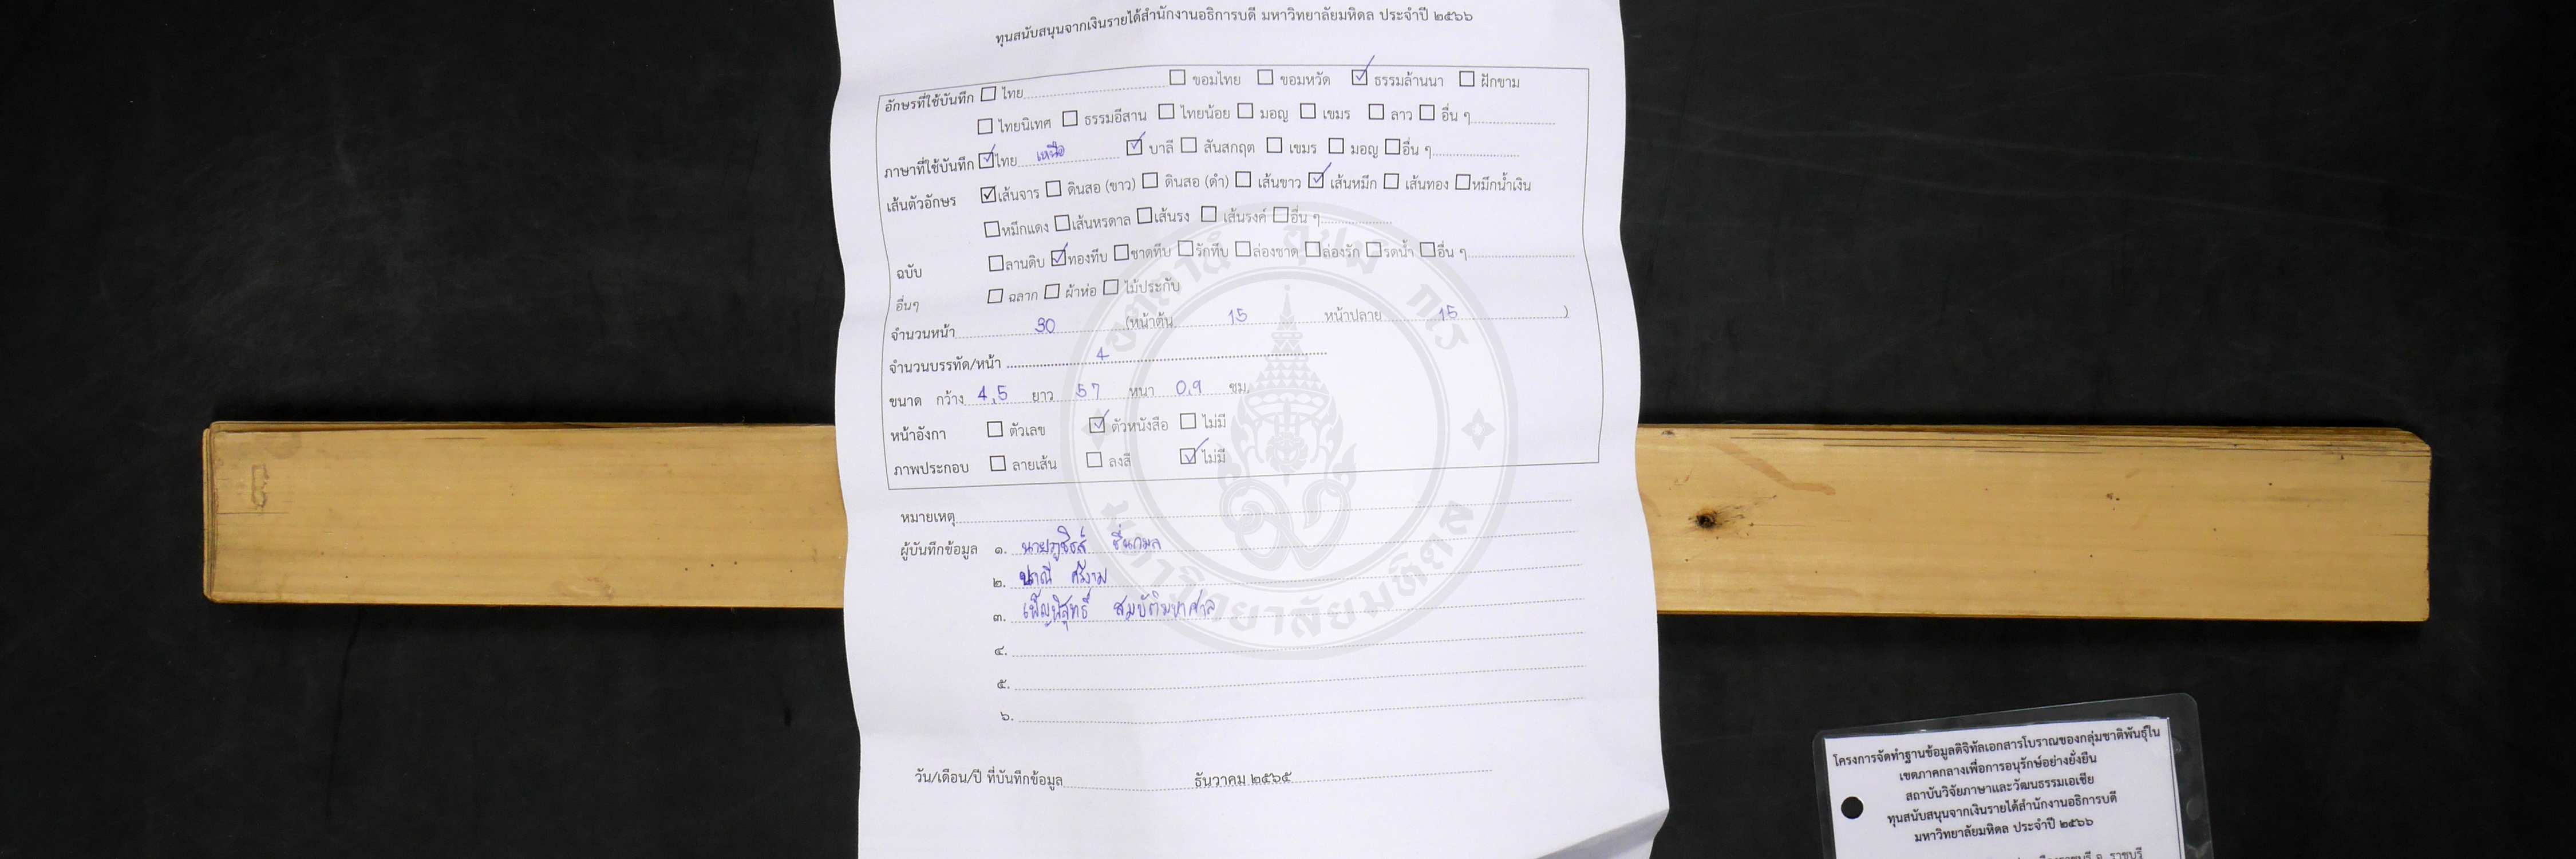 ทุนสนับสนุนจากเงินรายได้สำนักงานอธิการบดี มหาวิทยาลัยมหิดล ประจำปี ๒๕๖๖
อักษรที่ใช้บันทึก ☐ ไทย ☐ ขอมไทย ☐ ขอมหวัด ☑ ธรรมล้านนา ☐ ฝักขาม
☐ ไทยนิเทศ ☐ ธรรมอีสาน ☐ ไทยน้อย ☐ มอญ ☐ เขมร ☐ ลาว ☐ อื่น ๆ
ภาษาที่ใช้บันทึก ☑ ไทย เหนือ ☑ บาลี ☐ สันสกฤต ☐ เขมร ☐ มอญ ☐ อื่น ๆ
เส้นตัวอักษร ☑ เส้นจาร ☐ ดินสอ (ขาว) ☐ ดินสอ (ดำ) ☐ เส้นขาว ☑ เส้นหมึก ☐ เส้นทอง ☐ หมึกน้ำเงิน
☐ หมึกแดง ☐ เส้นหรดาล ☐ เส้นรง ☐ เส้นรงค์ ☐ อื่น ๆ
ฉบับ ☐ ลานดิบ ☑ ทองทึบ ☐ ชาดทึบ ☐ รักทึบ ☐ ล่องชาด ☐ ล่องรัก ☐ รดน้ำ ☐ อื่น ๆ
อื่นๆ ☐ ฉลาก ☐ ผ้าห่อ ☐ ไม้ประกับ
จำนวนหน้า 30 (หน้าต้น 15 หน้าปลาย 15 )
จำนวนบรรทัด/หน้า 4
ขนาด กว้าง 4.5 ยาว 57 หนา 0.9 ซม.
หน้าอังกา ☐ ตัวเลข ☑ ตัวหนังสือ ☐ ไม่มี
ภาพประกอบ ☐ ลายเส้น ☐ ลงสี ☑ ไม่มี
หมายเหตุ
ผู้บันทึกข้อมูล ๑.
๒.
๓. เพ็ญพิสุทธิ์ สมบัติมหาศาล
๔.
๕.
๖.
วัน/เดือน/ปี ที่บันทึกข้อมูล ธันวาคม ๒๕๖๕
มหาวิทยาลัยมหิดล
โครงการจัดทำฐานข้อมูลดิจิทัลเอกสารโบราณของกลุ่มชาติพันธุ์ใน
เขตภาคกลางเพื่อการอนุรักษ์อย่างยั่งยืน
สถาบันวิจัยภาษาและวัฒนธรรมเอเชีย
ทุนสนับสนุนจากเงินรายได้สำนักงานอธิการบดี
มหาวิทยาลัยมหิดล ประจำปี ๒๕๖๖